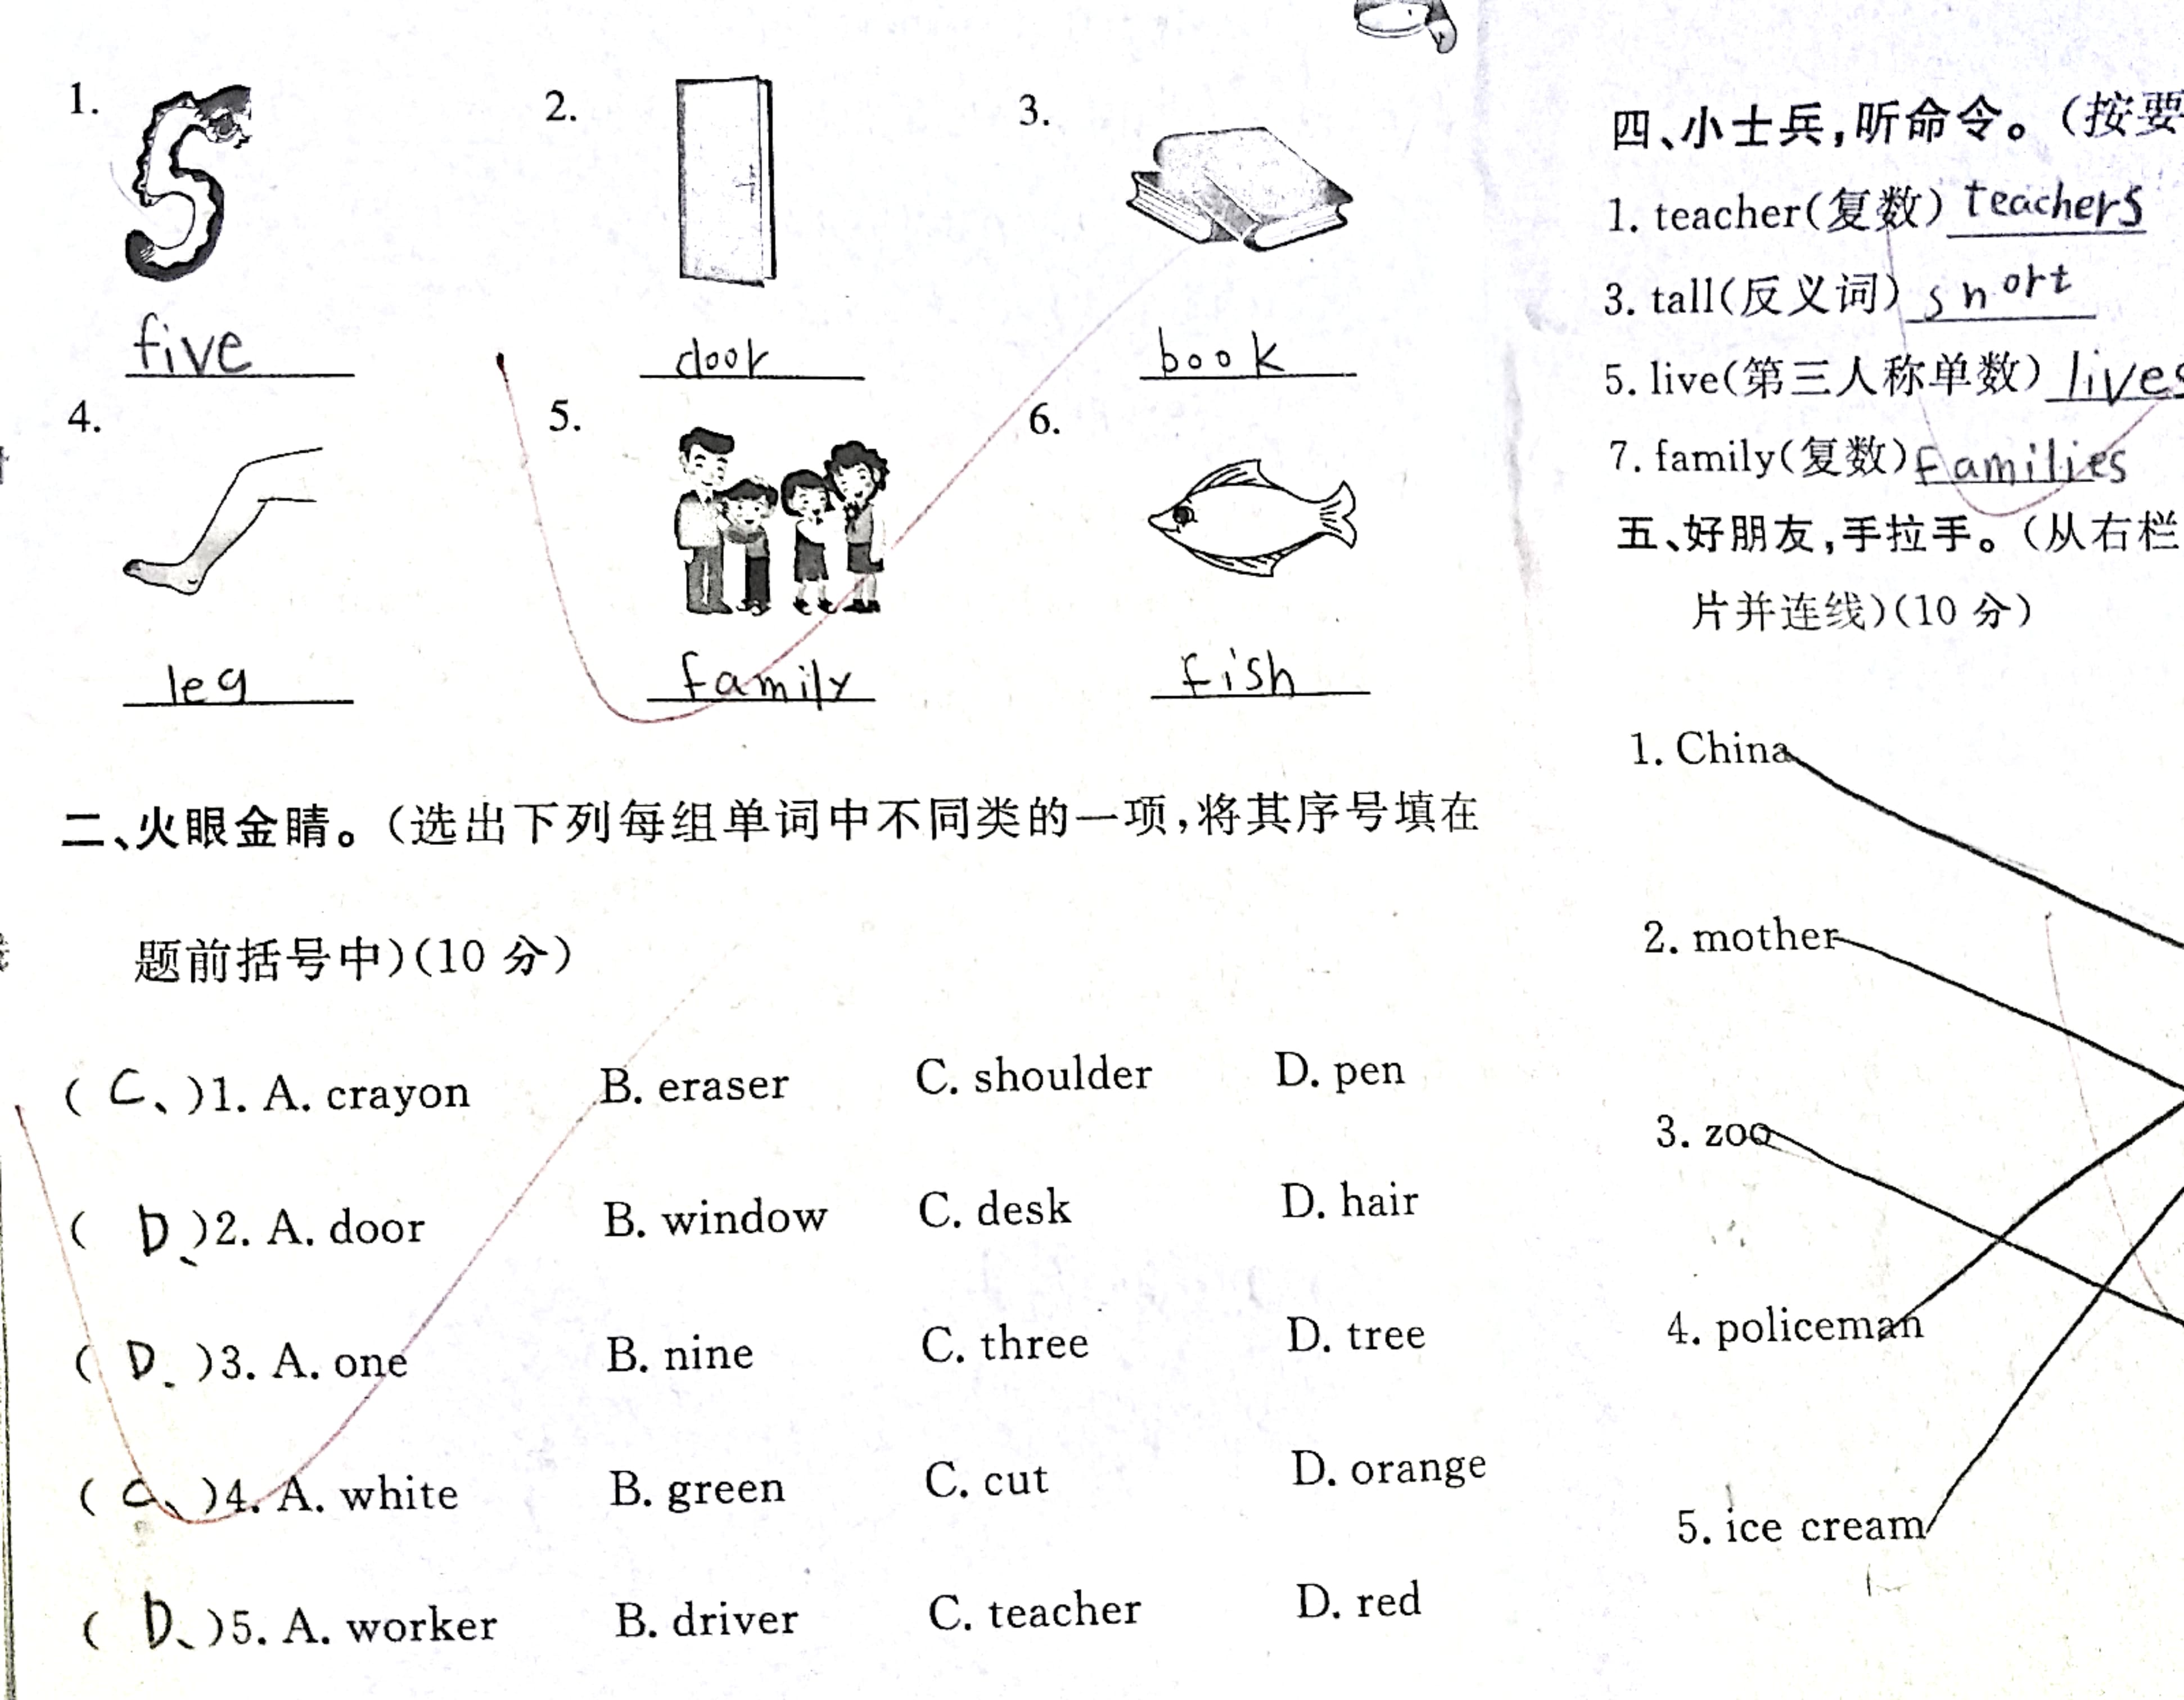 1.
2.
3.
five
door
book
4.
5.
6.
leg
family
fish
二、火眼金睛。(选出下列每组单词中不同类的一项,将其序号填在
题前括号中)(10 分)
( C、)1. A. crayon B. eraser C. shoulder D. pen
( D、)2. A. door B. window C. desk D. hair
( D. )3. A. one B. nine C. three D. tree
( C、)4. A. white B. green C. cut D. orange
( D、)5. A. worker B. driver C. teacher D. red
四、小士兵,听命令。(按要
1. teacher(复数) teachers
3. tall(反义词) short
5. live(第三人称单数) lives
7. family(复数) families
五、好朋友,手拉手。(从右栏
片并连线)(10 分)
1. China
2. mother
3. zoo
4. policeman
5. ice cream